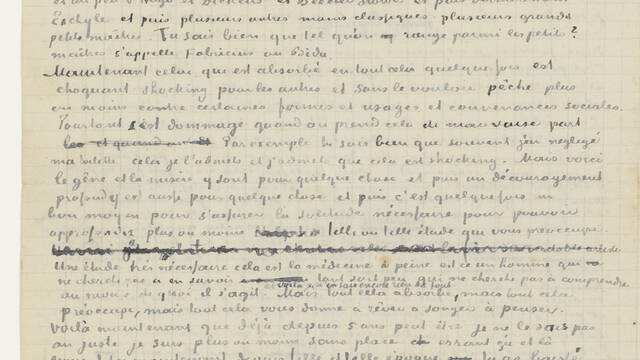 et un peu V. Hugo et Dickens et Beecher Stowe et puis dernièrement
Eschyle et puis plusieurs autres moins classiques plusieurs grands
petits maîtres. Tu sais bien que tel qu'on range parmi les petits?
maîtres s'appelle Fabricius ou Bida.
Maintenant celui qui est absorbé en tout cela quelquefois est
choquant shocking pour les autres et sans le vouloir pêche plus
ou moins contre certaines formes et usages et convenances sociales.
Pourtant c'est dommage quand on prend cela de mauvaise part
Par exemple tu sais bien que souvent j'ai négligé
ma toilette cela je l'admets et j'admets que cela est shocking. Mais voici
le gêne et la misère y sont pour quelque chose et puis un découragement
profond y est aussi pour quelque chose et puis c'est quelquefois un
bon moyen pour s'assurer la solitude nécessaire pour pouvoir
approfondir plus ou moins telle ou telle étude qui vous préoccupe.
Une étude très nécessaire cela est la médecine à peine est ce un homme qui
ne cherche pas a en savoir tant soit peu qui ne cherche pas à comprendre
au moins de quoi il s'agit. et voilà je n'en sais encore rien du tout Mais tout cela absorbe, mais tout cela
préoccupe, mais tout cela vous donne à rêver à songer à penser.
Voilà maintenant que déjà depuis 5 ans peut être je ne le sais pas
au juste je suis plus ou moins sans place errant çà et là